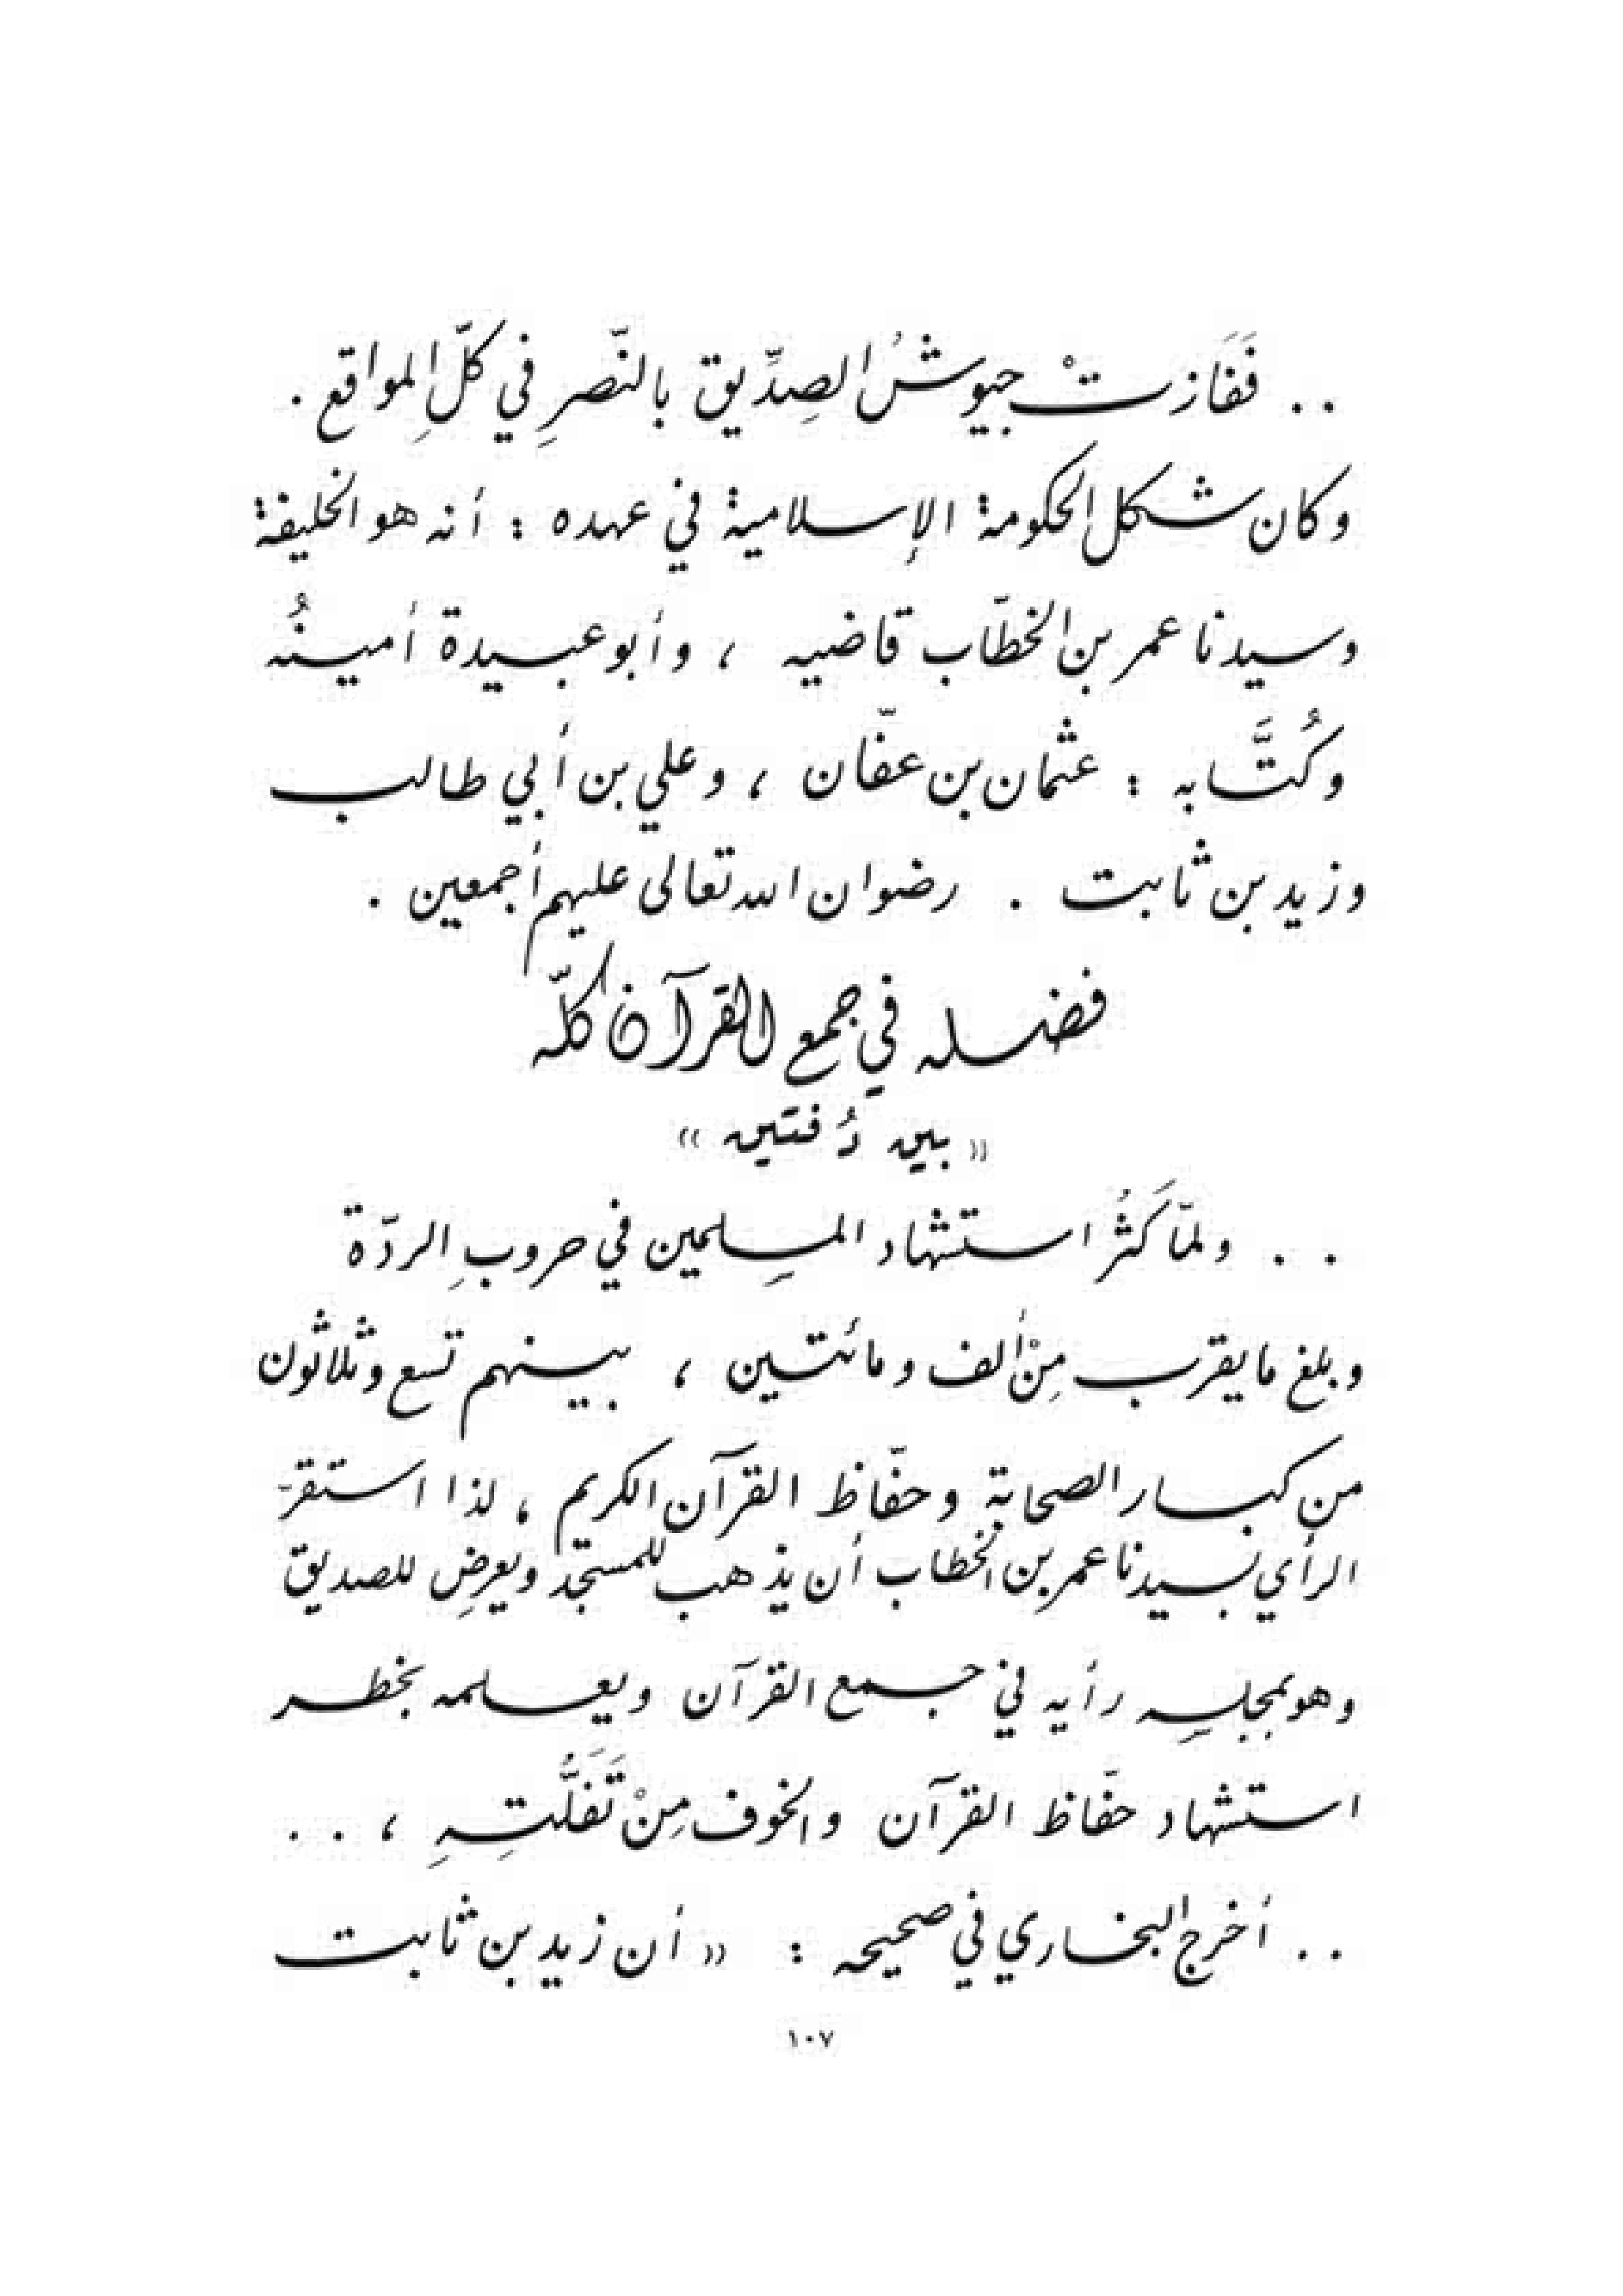 . . فَفَازتْ جيوشُ الصِدِّيق بالنّصرِ في كلِّ المواقع .
وكان شكل الحكومة الإسلامية في عهده : أنه هو الخليفة
وسيدنا عمر بن الخطّاب قاضيه ، وأبو عبيدة أمينُه
وكُتَّابه : عثمان بن عفّان ، وعلي بن أبي طالب
وزيد بن ثابت . رضوان الله تعالى عليهم أجمعين .
فضله في جمع القرآن كلّه
« بين دُفتين »
. . ولمّا كَثُر استشهاد المسلِمين في حروبِ الردّة
وبلغ ما يقرب مِنْ ألف ومائتين ، بينهم تسع وثلاثون
من كبار الصحابة وحفّاظ القرآن الكريم ، لذا استقرّ
الرأي بسيدنا عمر بن الخطاب أن يذهب للمسجد ويعرِض للصديق
وهو بمجلسِه رأيه في جمع القرآن ويعلمه بخطر
استشهاد حفّاظ القرآن والخوف مِنْ تَفَلُّتِهِ ، . .
. . أخرج البخاري في صحيحه : « أن زيد بن ثابت
١٠٧